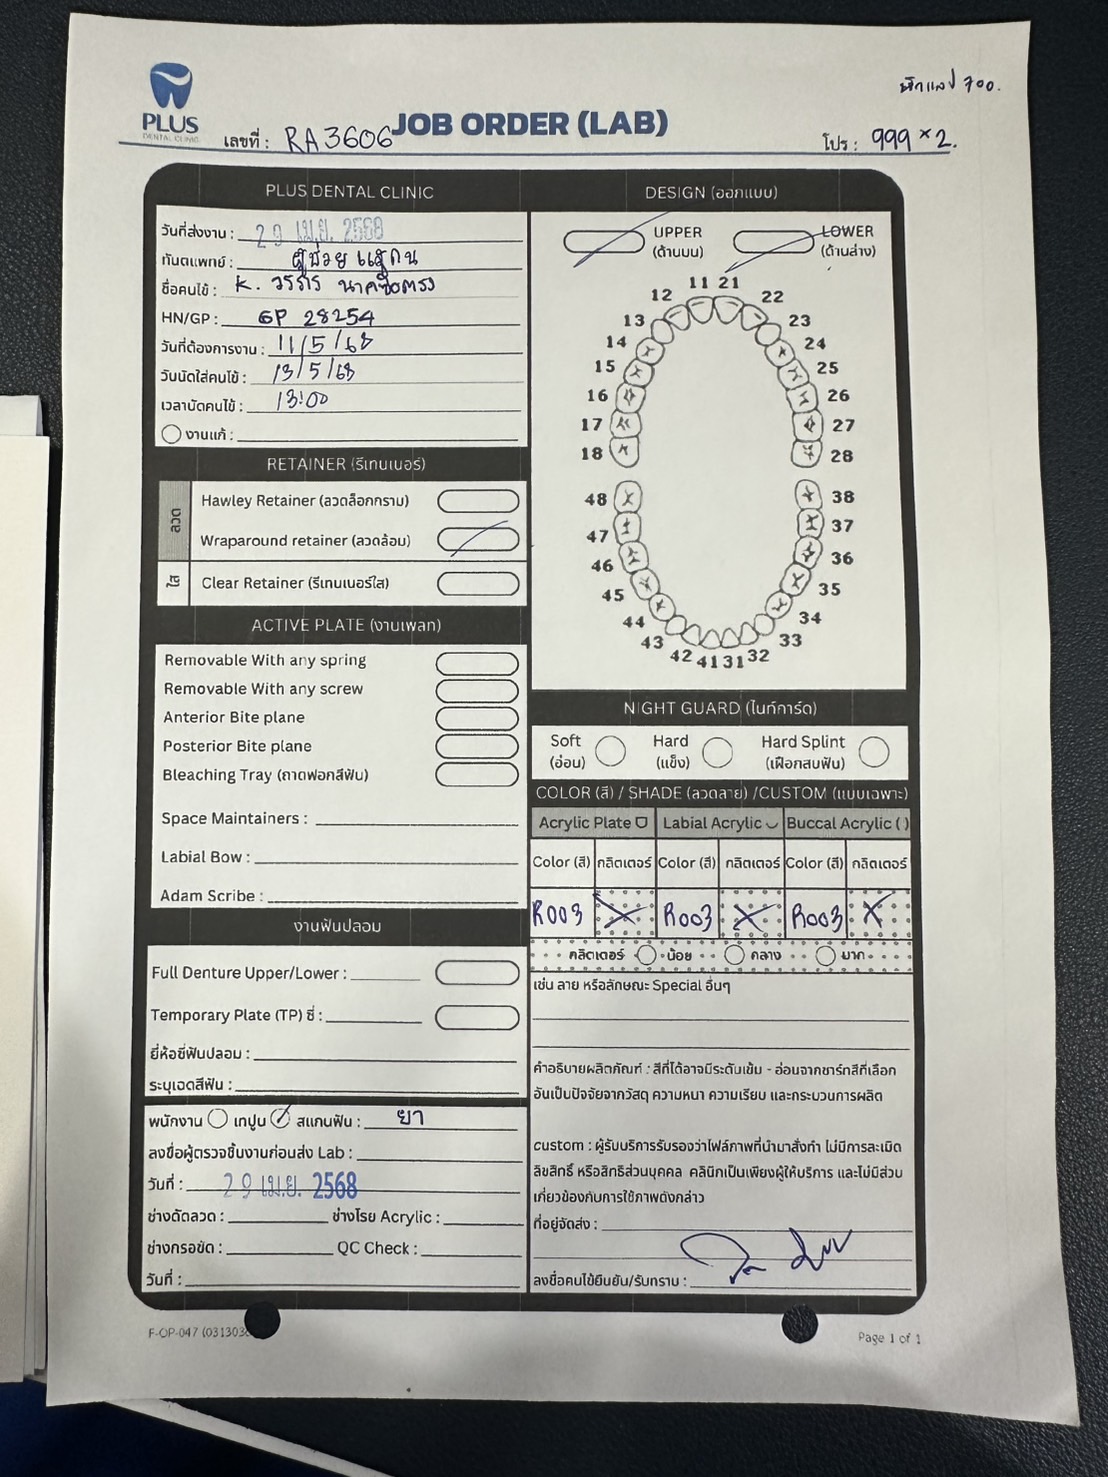 หักแลป 700.
PLUS
DENTAL CLINIC
เลขที่ : RA3606
JOB ORDER (LAB)
โปร : 999 × 2.
PLUS DENTAL CLINIC
วันที่ส่งงาน : 29 เม.ย. 2568
ทันตแพทย์ : ผู้ช่วย
ชื่อคนไข้ : K.
HN/GP : GP 28254
วันที่ต้องการงาน : 11/5/68
วันนัดใส่คนไข้ : 13/5/68
เวลานัดคนไข้ : 13:00
งานแก้ :
RETAINER (รีเทนเนอร์)
ลวด
Hawley Retainer (ลวดล็อกกราม)
Wraparound retainer (ลวดล้อม)
ใส
Clear Retainer (รีเทนเนอร์ใส)
ACTIVE PLATE (งานเพลท)
Removable With any spring
Removable With any screw
Anterior Bite plane
Posterior Bite plane
Bleaching Tray (ถาดฟอกสีฟัน)
Space Maintainers :
Labial Bow :
Adam Scribe :
งานฟันปลอม
Full Denture Upper/Lower :
Temporary Plate (TP) ซี่ :
ยี่ห้อซี่ฟันปลอม :
ระบุเฉดสีฟัน :
พนักงาน เทปูน สแกนฟัน : ยา
ลงชื่อผู้ตรวจชิ้นงานก่อนส่ง Lab :
วันที่ : 29 เม.ย. 2568
ช่างดัดลวด : ช่างโรย Acrylic :
ช่างกรอขัด : QC Check :
วันที่ :
DESIGN (ออกแบบ)
UPPER
(ด้านบน)
LOWER
(ด้านล่าง)
11 21
12 22
13 23
14 24
15 25
16 26
17 27
18 28
48 38
47 37
46 36
45 35
44 34
43 33
42 41 31 32
NIGHT GUARD (ไนท์การ์ด)
Soft
(อ่อน)
Hard
(แข็ง)
Hard Splint
(เฝือกสบฟัน)
COLOR (สี) / SHADE (ลวดลาย) /CUSTOM (แบบเฉพาะ)
Acrylic Plate Labial Acrylic Buccal Acrylic ( )
Color (สี) กลิตเตอร์ Color (สี) กลิตเตอร์ Color (สี) กลิตเตอร์
R003 R003 R003
กลิตเตอร์ น้อย กลาง มาก
เช่น ลาย หรือลักษณะ Special อื่นๆ
คำอธิบายผลิตภัณฑ์ : สีที่ได้อาจมีระดับเข้ม - อ่อนจากชาร์ทสีที่เลือก
อันเป็นปัจจัยจากวัสดุ ความหนา ความเรียบ และกระบวนการผลิต
custom : ผู้รับบริการรับรองว่าไฟล์ภาพที่นำมาสั่งทำ ไม่มีการละเมิด
ลิขสิทธิ์ หรือสิทธิส่วนบุคคล คลินิกเป็นเพียงผู้ให้บริการ และไม่มีส่วน
เกี่ยวข้องกับการใช้ภาพดังกล่าว
ที่อยู่จัดส่ง :
ลงชื่อคนไข้ยืนยัน/รับทราบ :
F-OP-047
Page 1 of 1